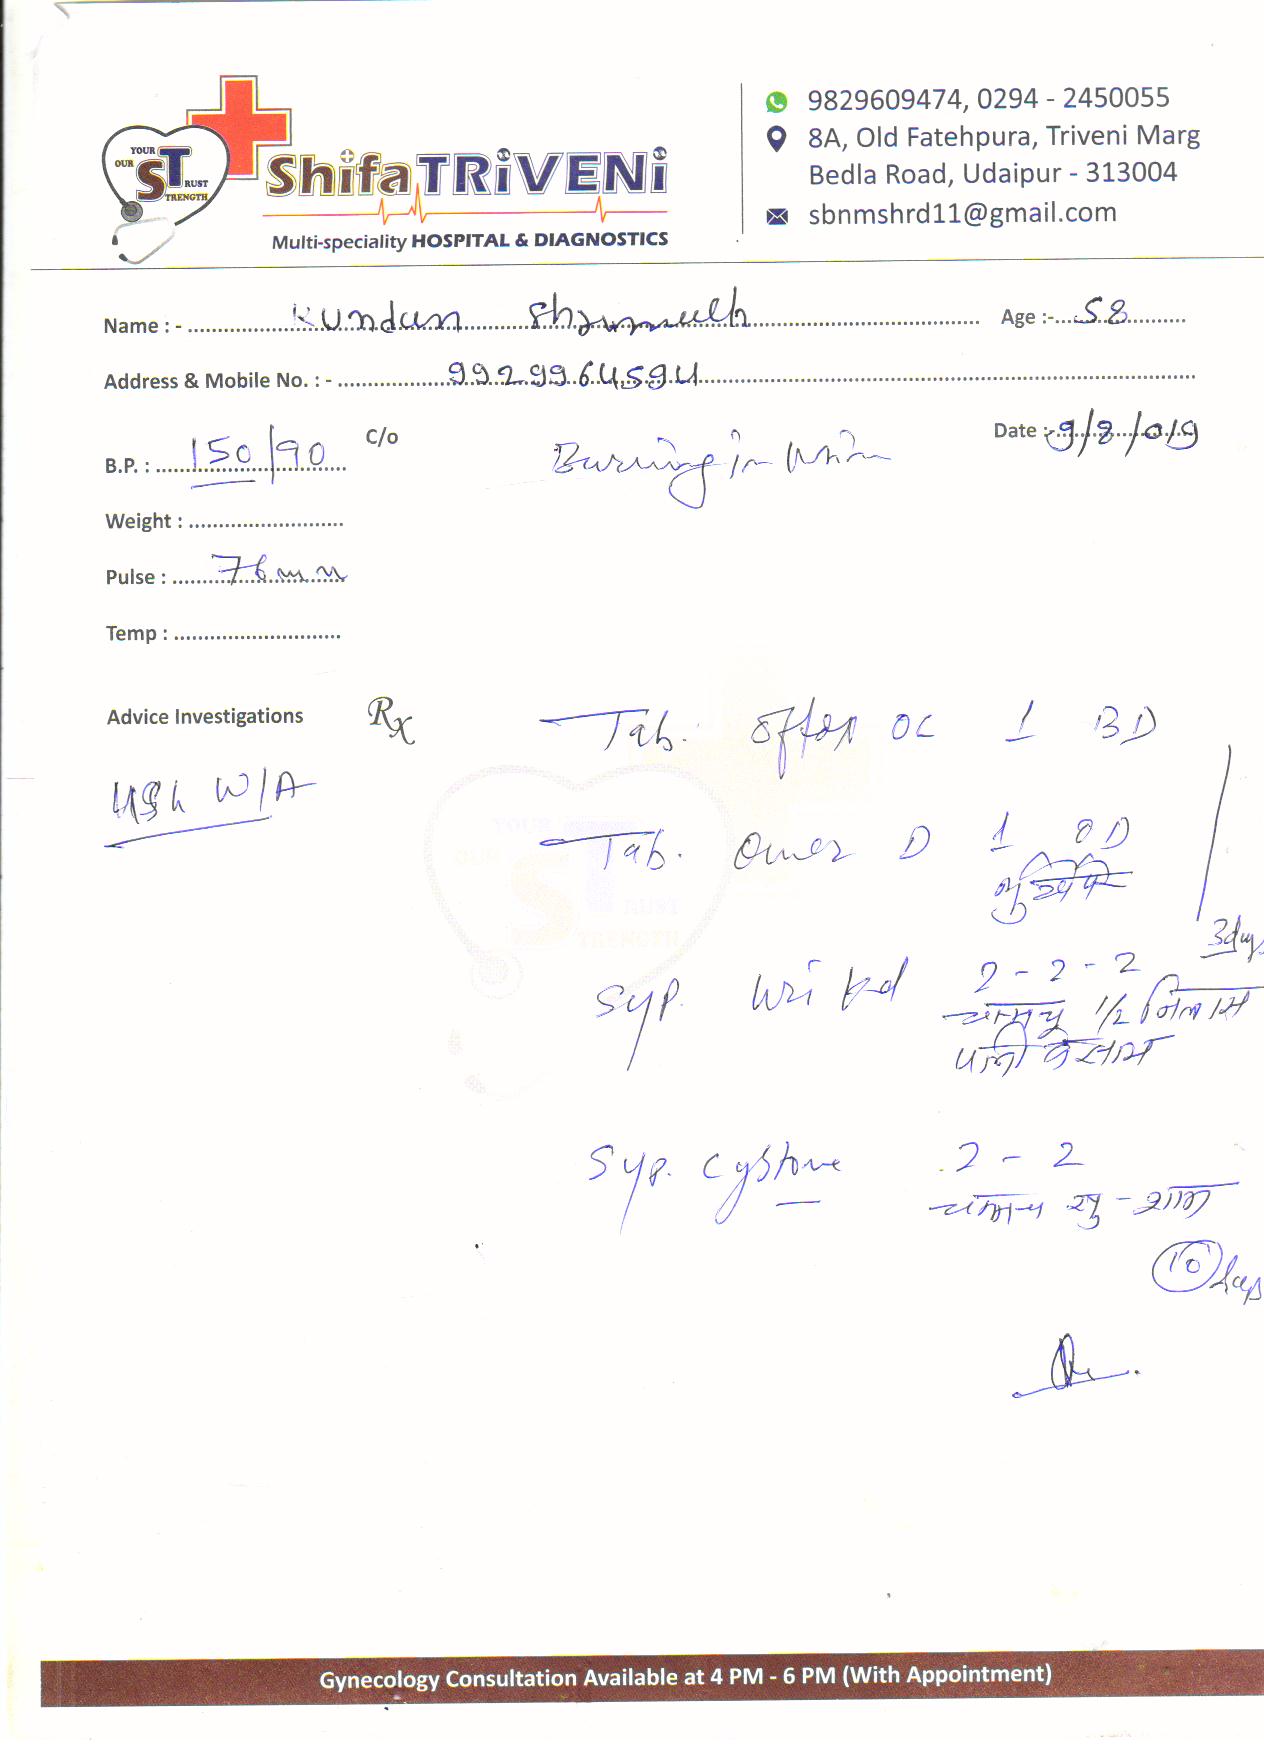 YOUR
OUR ST RUST
TRENGTH
ShifaTRiVENi
Multi-speciality HOSPITAL & DIAGNOSTICS
9829609474, 0294 - 2450055
8A, Old Fatehpura, Triveni Marg
Bedla Road, Udaipur - 313004
sbnmshrd11@gmail.com
Name : - Kundan Age :- 58
Address & Mobile No. : - 9929964594
B.P. : 150/90 C/o Burning in Date :- 9/8/019
Weight :
Pulse : 76
Temp :
Advice Investigations Rx Tab. OC 1 BD
W/A
Tab. Omez D 1 OD
3 days
Syp. 2 - 2 - 2
चम्मच 1/2 गिलास
पानी के साथ
Syp. Cystone 2 - 2
चम्मच सु - शाम
10 days
Gynecology Consultation Available at 4 PM - 6 PM (With Appointment)